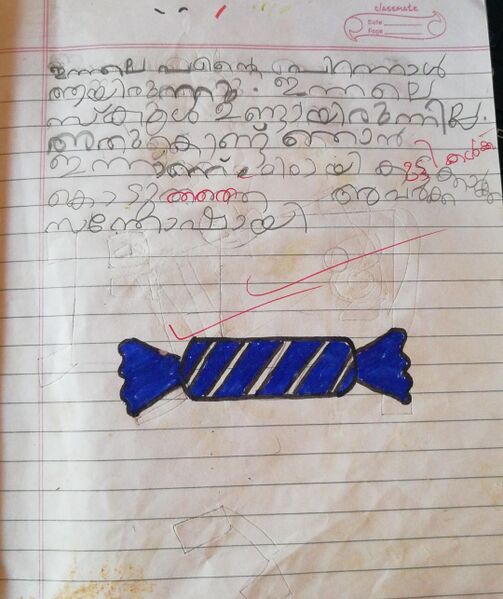 classmate
Date
Page
ഇന്നലെ പന്റെ പിറന്നാൾ
ആയിരുന്നു. ഇന്നലെ
സ്കൂൾ ഉണ്ടായിരുന്നില്ല.
അതുകൊണ്ട് ഞാൻ
ഇന്നാണ് മിഠായി
കൊടുത്തത് അവർക്ക്
സന്തോഷായി